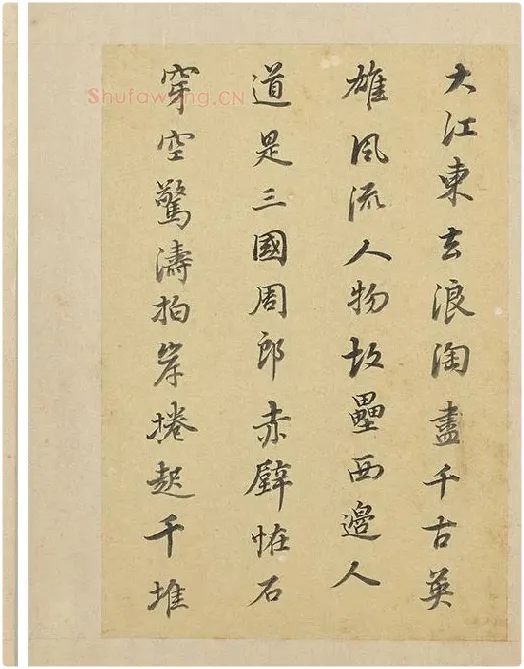 大江東去浪淘盡千古英
雄風流人物故壘西邊人
道是三國周郎赤壁怪石
穿空驚濤拍岸捲起千堆
Shufawang.CN